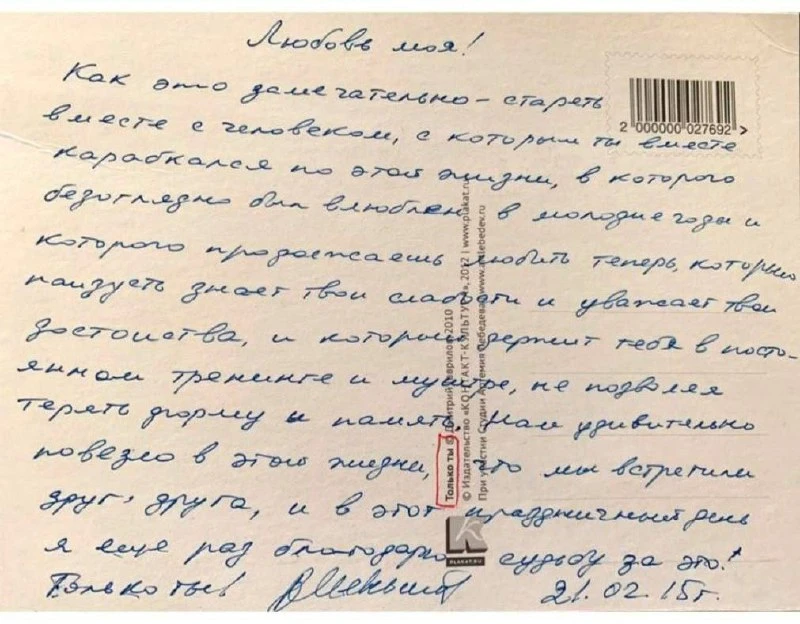 Любовь моя!
Как это замечательно - стареть
вместе с человеком, с которым ты вместе
карабкался по этой жизни, в которого
безоглядно был влюблен в молодые годы и
которого продолжаешь любить теперь, который
наизусть знает твои слабости и уважает твои
достоинства, и который держит тебя в посто-
янном тренинге и муштре, не позволяя
терять форму и память. Нам удивительно
повезло в этой жизни, что мы встретили
друг друга, и в этот праздничный день
я еще раз благодарю судьбу за это!
Только ты!
21.02.15г.
2 000000 027692 >
Только ты © Дмитрий Гаврилов 2010
© Издательство «КОНТАКТ-КУЛЬТУРА», 2012 | www.plakat.ru
При участии Студии Артемия Лебедева www.artlebedev.ru
PLAKAT.RU